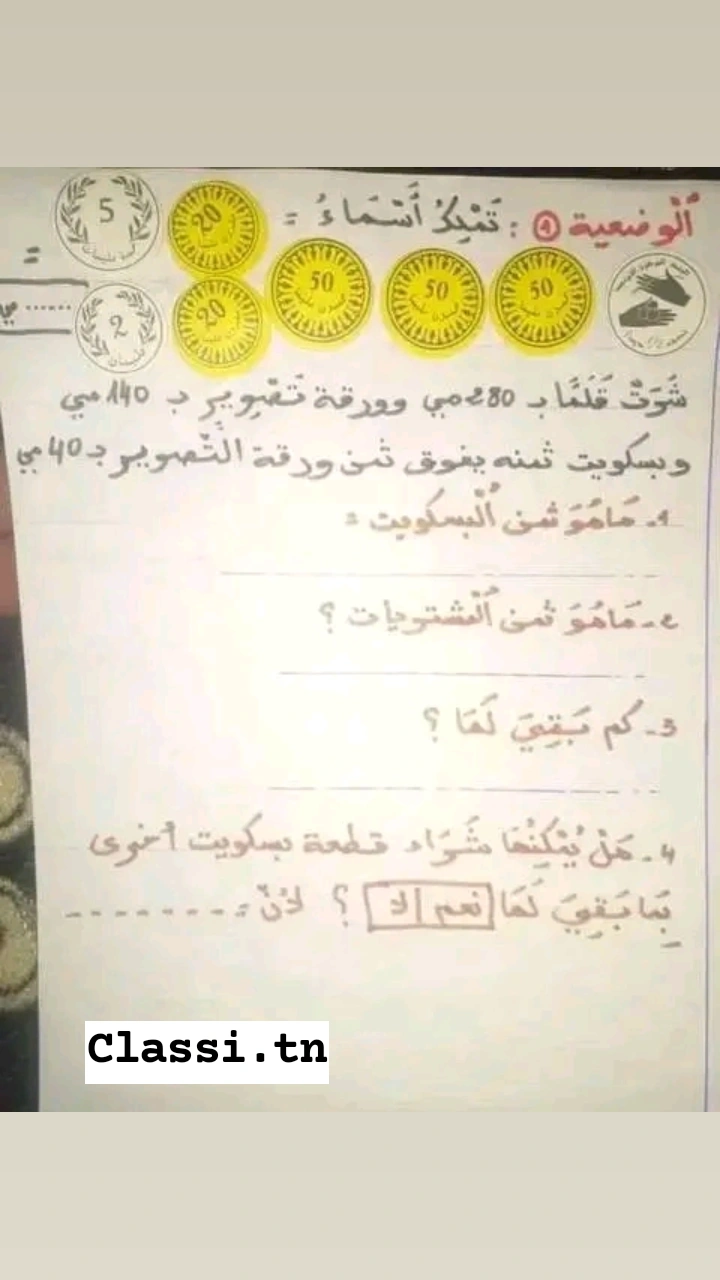 اَلْوضعية ① : تَمْلِكُ أَسْمَاءُ =
5 20
50 50 50
= ...... مي
2 20
شَرَتْ قَلَمًا بـ 280 مي وورقة تَصْوِيرٍ بـ 140 مي
وبسكويت ثمنه يفوق ثمن ورقة التّصوير بـ 40 مي
1. مَاهُوَ ثمن اُلْبسكويت =
2. مَاهُوَ ثمن اُلْمشتريات ؟
3. كم بَقِيَ لَهَا ؟
4. هَلْ يُمْكِنُهَا شَرَاء قطعة بسكويت أخرى
بِمَا بَقِيَ لَهَا نعم لا ؟ لأنّ = ........
Classi.tn